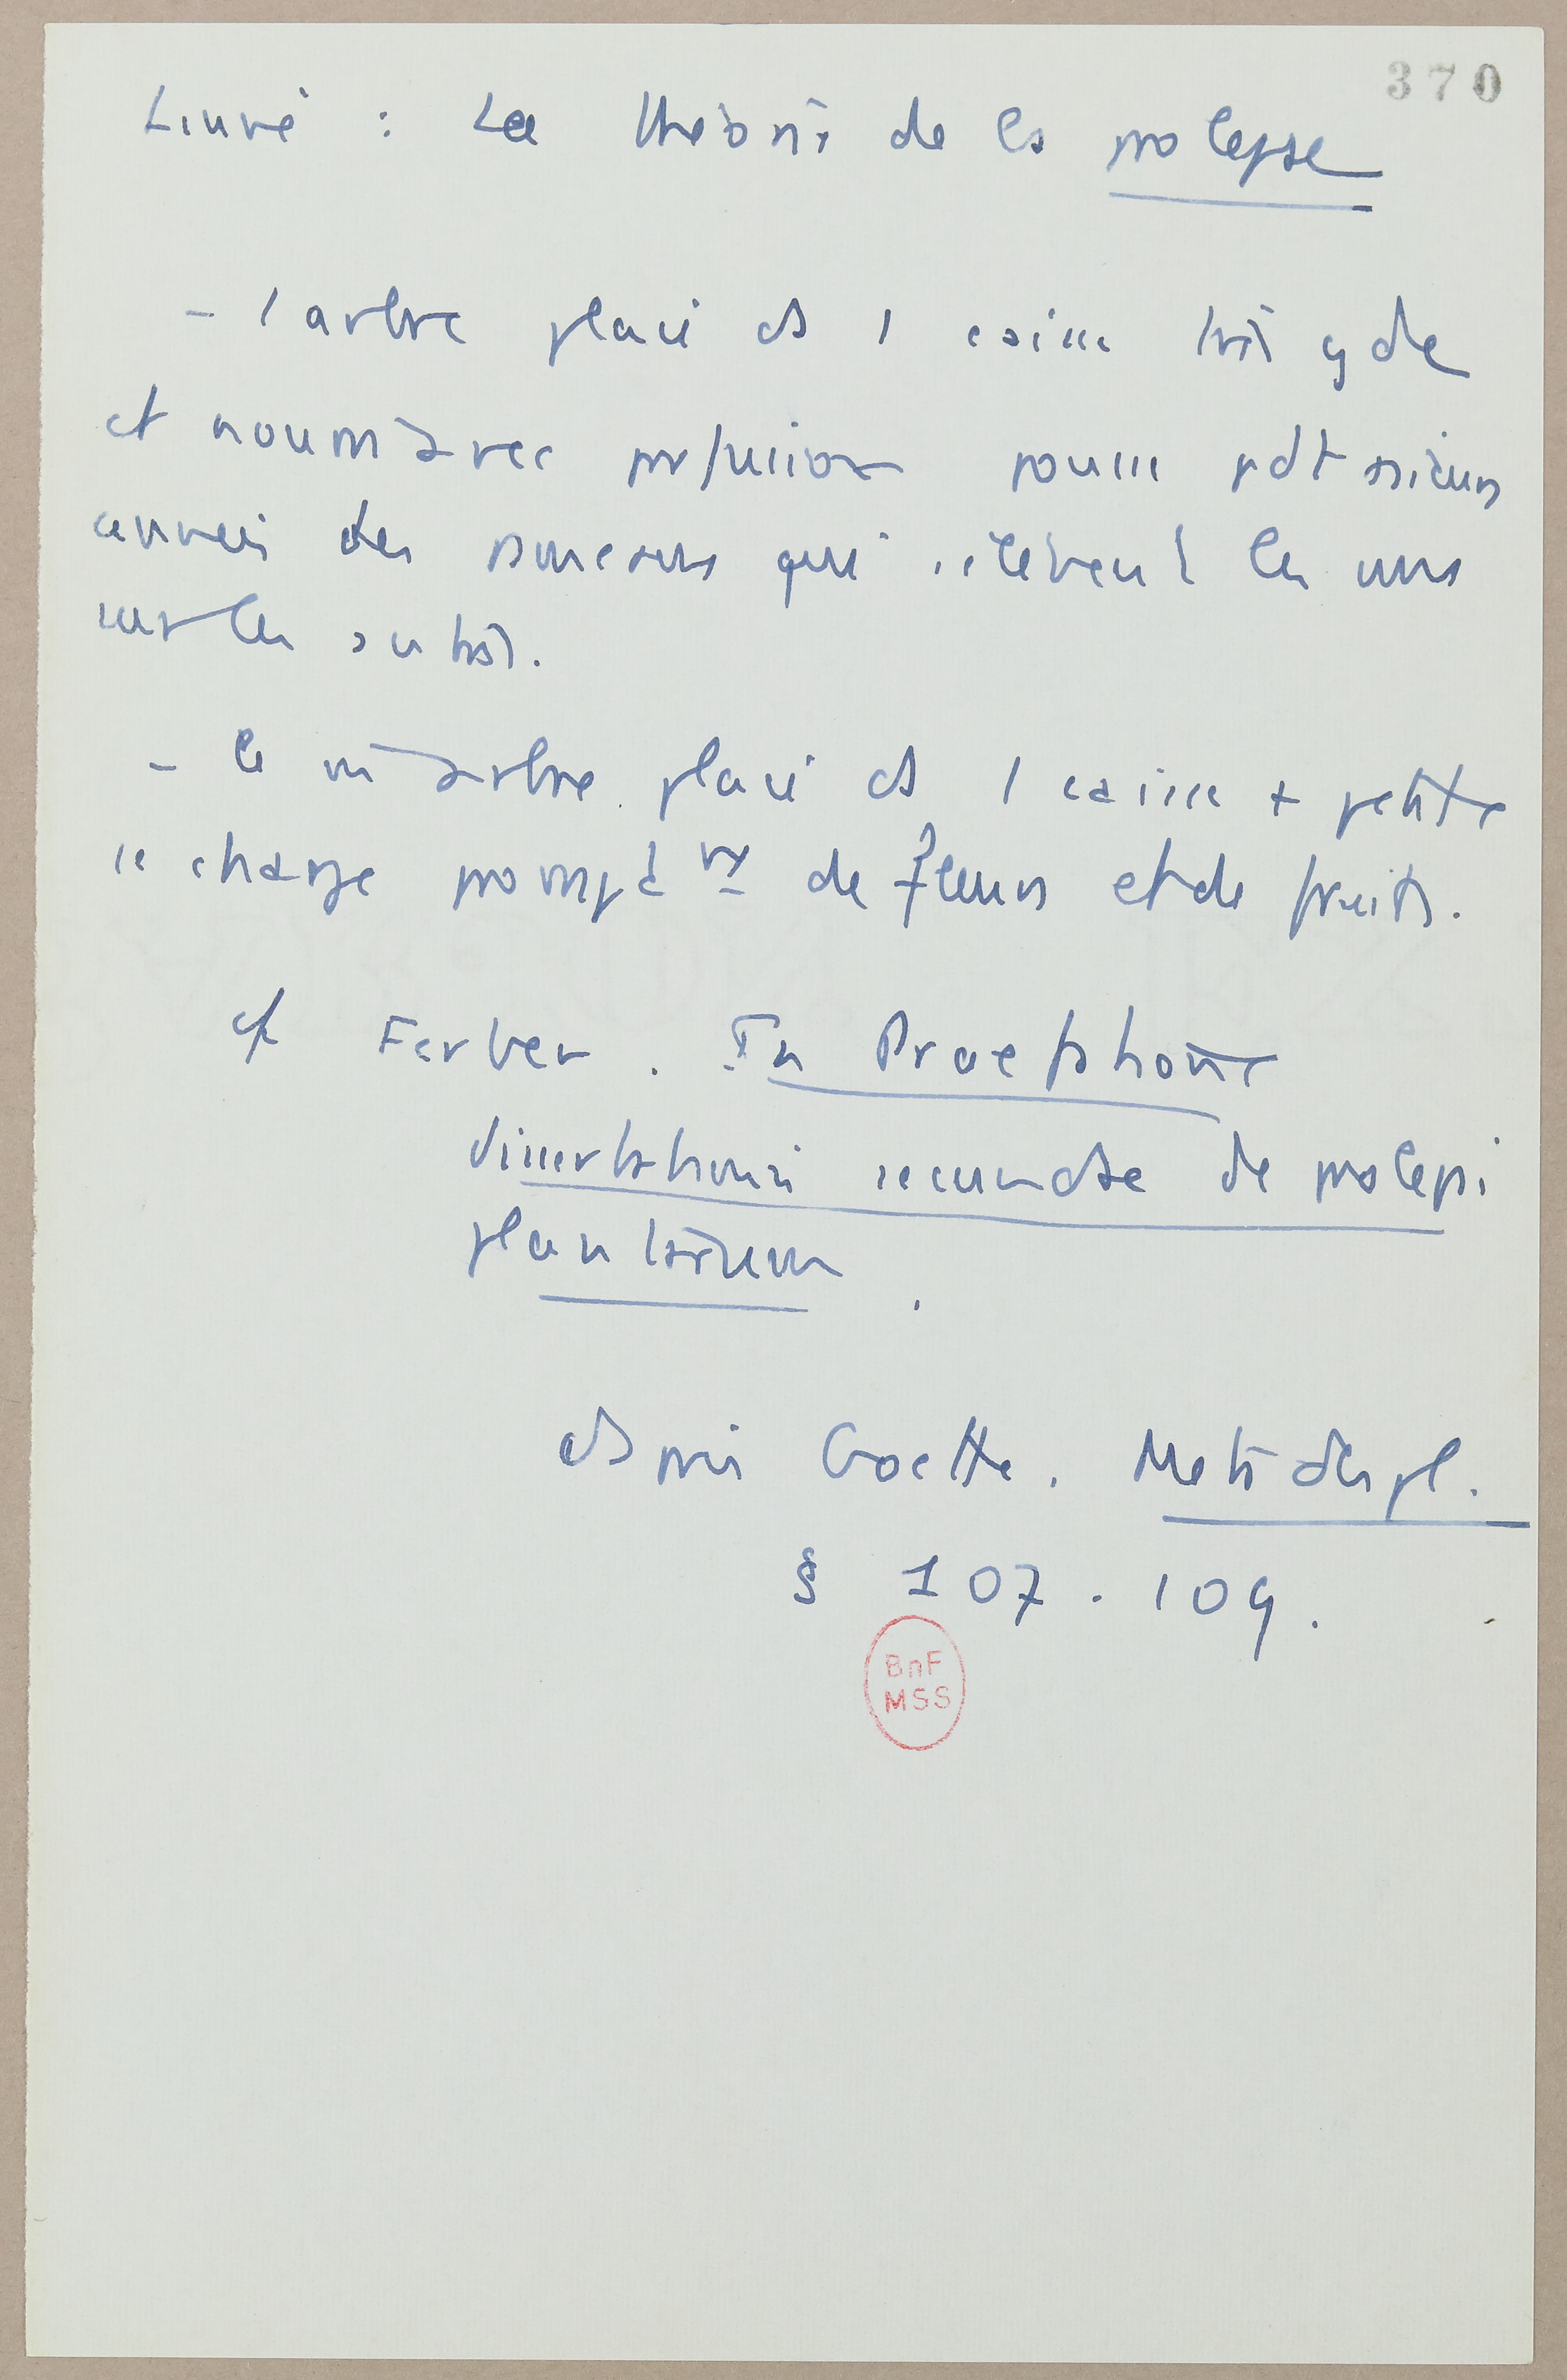 370
Linné : La théorie de la prolepse
- 1 arbre placé ds 1 caisse très gde
et nourri avec profusion pousse pdt plusieurs
années des rameaux qui s'élèvent les uns
sur les autres.
- le m arbre placé ds 1 caisse + petite
se charge prompt de fleurs et de fruits.
cf Ferber. In Praefatione
dissertationis secundae de prolepsi
plantarum.
Goethe. Meta des pl.
§ 107 . 109.
BnF
MSS